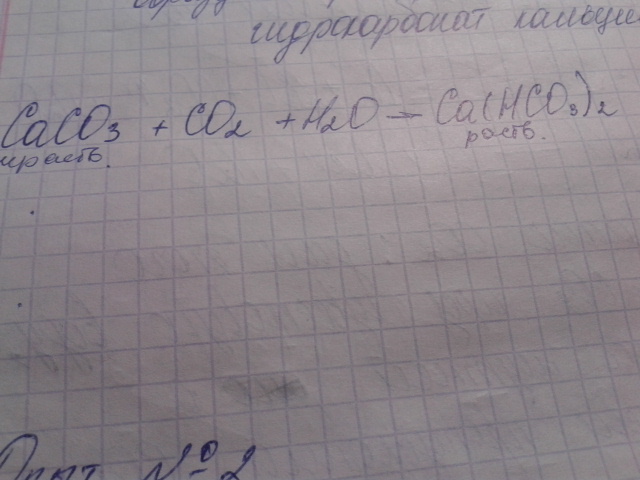 гидрокарбонат кальция
CaCO3 + CO2 + H2O = Ca(HCO3)2
нраств. раств.
Опыт №2